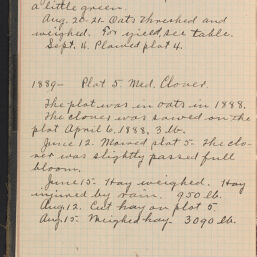 a little green.
Aug. 20-21. Oats threshed and
weighed. For yield, see table.
Sept. 16. Plowed plot 4.
1889- Plot 5. Med. Clover.
The plot was in oats in 1888.
The clover was sowed on the
plot April 6, 1888, 3 lb.
June 12. Mowed plot 5. The clo-
ver was slightly passed full
bloom.
June 15- Hay weighed. Hay
injured by rain. 950 lb.
Aug 12. Cut hay on plot 5.
Aug. 15- Weighed hay. 3090 lb.